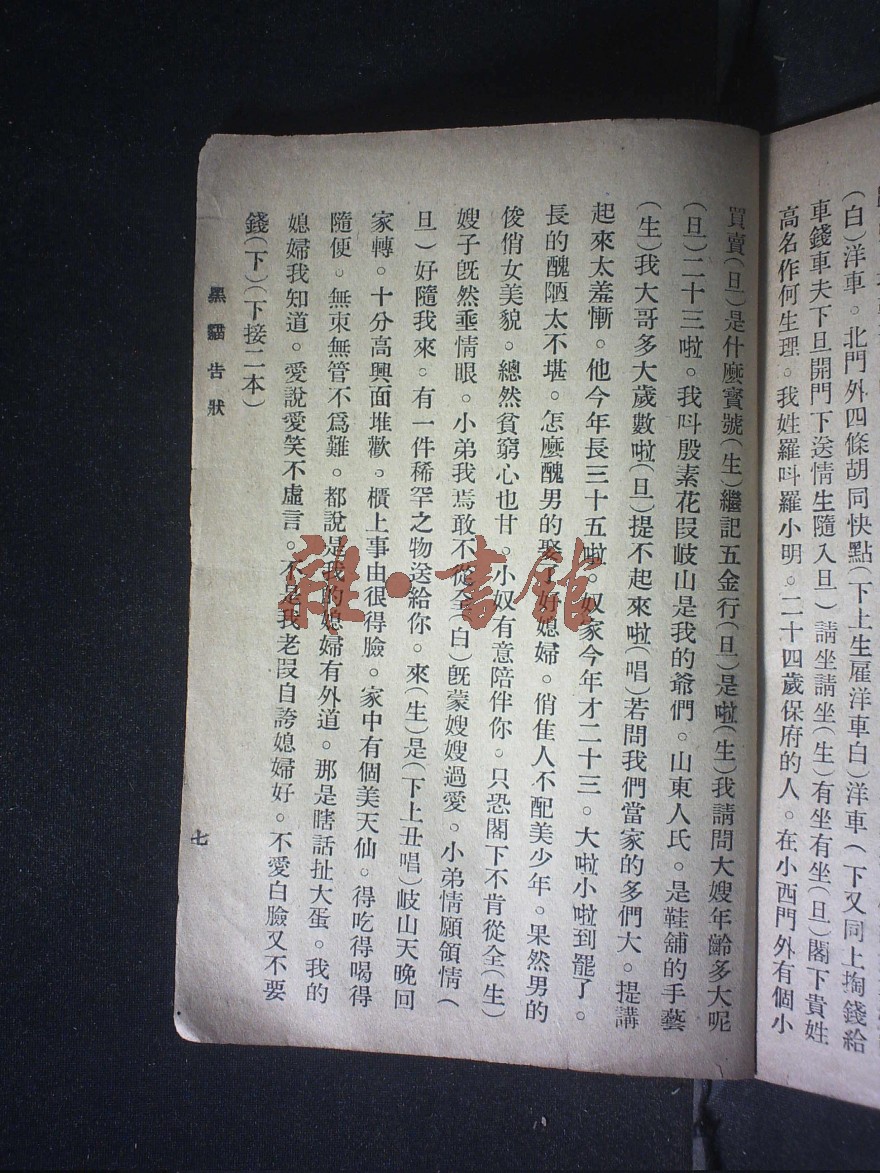 (白)洋車。北門外四條胡同快點(下上生雇洋車白)洋車(下又同上掏錢給
車錢車夫下旦開門下送情生隨入旦)請坐請坐(生)有坐有坐(旦)閣下貴姓
高名作何生理。我姓羅呌羅小明。二十四歲保府的人。在小西門外有個小
買賣(旦)是什麼寶號(生)繼記五金行(旦)是啦(生)我請問大嫂年齡多大呢
(旦)二十三啦。我呌殷素花段岐山是我的爺們。山東人氏。是鞋舖的手藝
(生)我大哥多大歲數啦(旦)提不起來啦(唱)若問我們當家的多們大。提講
起來太羞慚。他今年長三十五啦。奴家今年才二十三。大啦小啦到罷了。
長的醜陋太不堪。怎麼醜男的娶了好媳婦。俏佳人不配美少年。果然男的
俊俏女美貌。總然貧窮心也甘。小奴有意陪伴你。只恐閣下不肯從全(生)
嫂子旣然垂情眼。小弟我焉敢不從全(白)旣蒙嫂嫂過愛。小弟情願領情(
旦)好隨我來。有一件稀罕之物送給你。來(生)是(下上丑唱)岐山天晚回
家轉。十分高興面堆歡。櫃上事由很得臉。家中有個美天仙。得吃得喝得
隨便。無束無管不爲難。都說是我的媳婦有外道。那是瞎話扯大蛋。我的
媳婦我知道。愛說愛笑不虛言。不是我老段自誇媳婦好。不愛白臉又不要
錢(下)(下接二本)
黑貓告狀
七
雜·書館